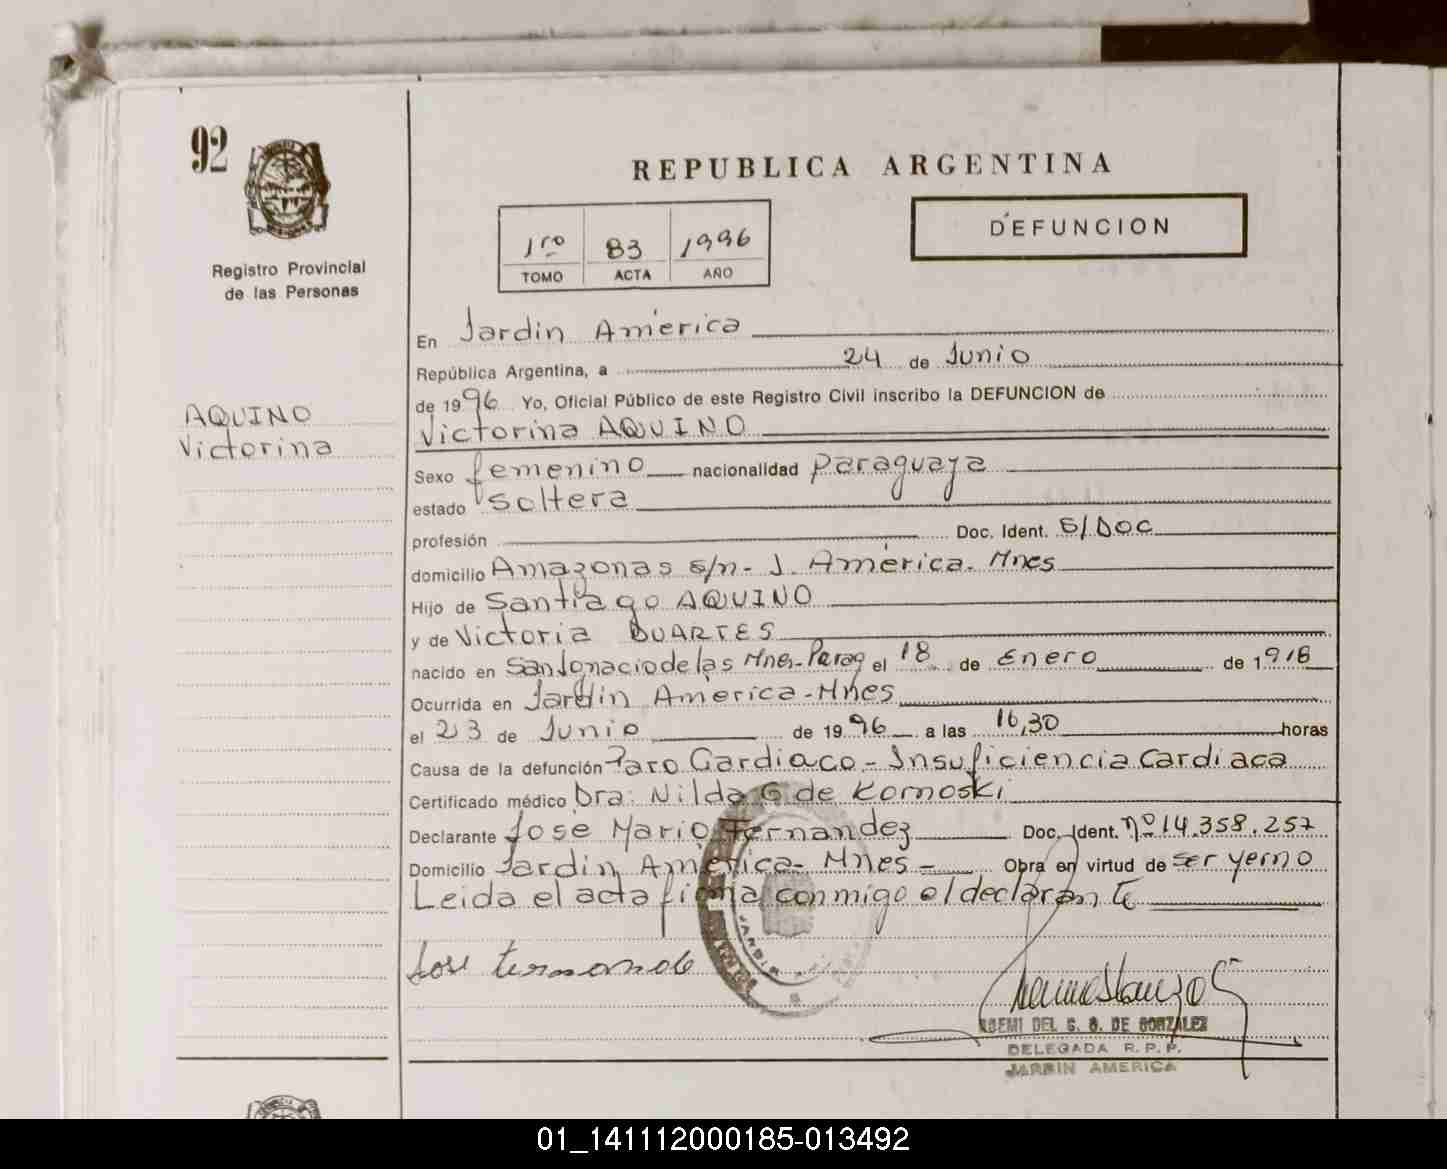 92
REPUBLICA ARGENTINA
DEFUNCION
1ro 83 1996
TOMO ACTA AÑO
Registro Provincial
de las Personas
AQUINO
Victorina
En Jardin América
República Argentina, a 24 de Junio
de 1996 Yo, Oficial Público de este Registro Civil inscribo la DEFUNCION de
Victorina AQUINO
Sexo femenino nacionalidad paraguaya
estado soltera
profesión Doc. Ident. S/Doc
domicilio Amazonas s/n - J. América - Mnes
Hijo de Santiago AQUINO
y de Victoria DUARTES
nacido en San Ignacio de las Mnes-Parag el 18 de Enero de 1918
Ocurrida en Jardin América - Mnes
el 23 de Junio de 1996 a las 16,30 horas
Causa de la defunción Paro Cardiaco - Insuficiencia Cardiaca
Certificado médico Dra: Nilda G de Komoski
Declarante José Mario Fernandez Doc. Ident. nº 14.358.257
Domicilio Jardin América - Mnes - Obra en virtud de ser yerno
Leida el acta firma conmigo el declarante
José
DEL G. DE GONZALEZ
DELEGADA R. P. P.
JARDIN AMERICA
01_141112000185-013492